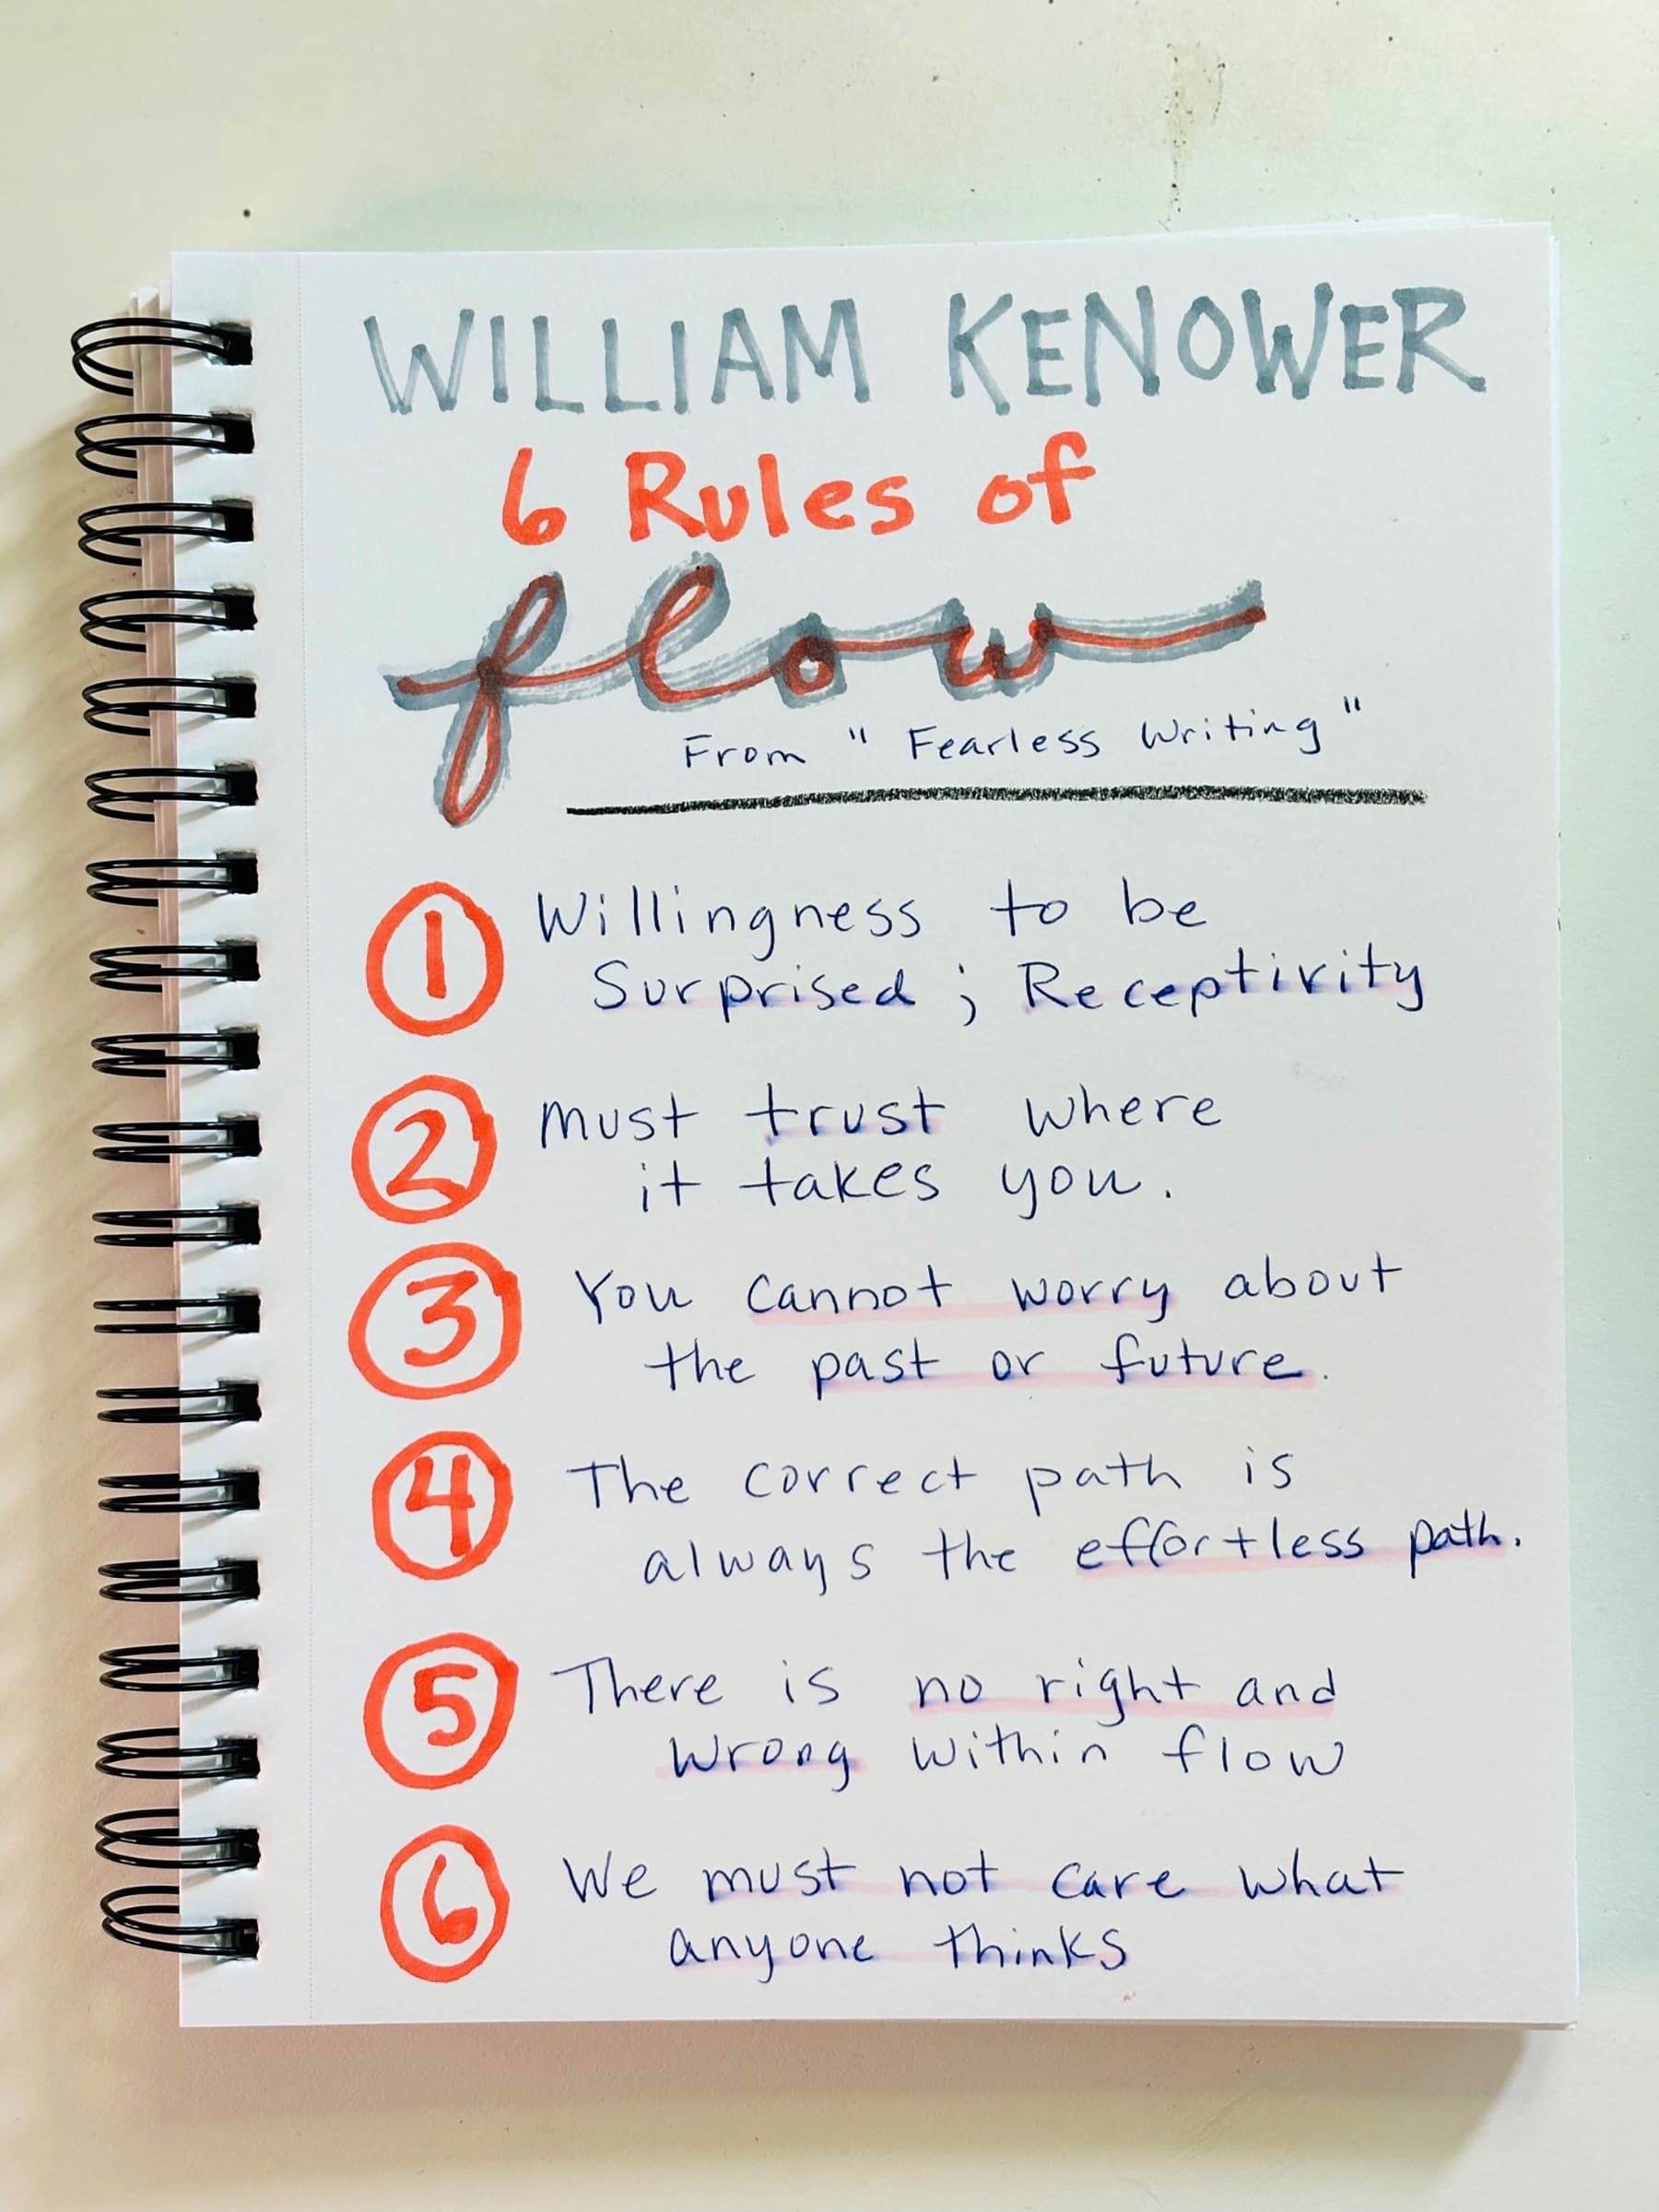 WILLIAM KENOWER
6 Rules of
flow
From "Fearless Writing"
1 Willingness to be
Surprised; Receptivity
2 Must trust where
it takes you.
3 You cannot worry about
the past or future.
4 The correct path is
always the effortless path.
5 There is no right and
wrong within flow
6 We must not care what
anyone thinks